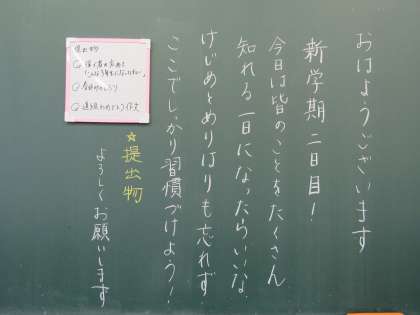 おはようございます
新学期二日目！
今日は皆のことをたくさん
知れる一日になったらいいな。
けじめとめりはりも忘れず
ここでしっかり習慣づけよう！
☆提出物
よろしくお願いします
提出物